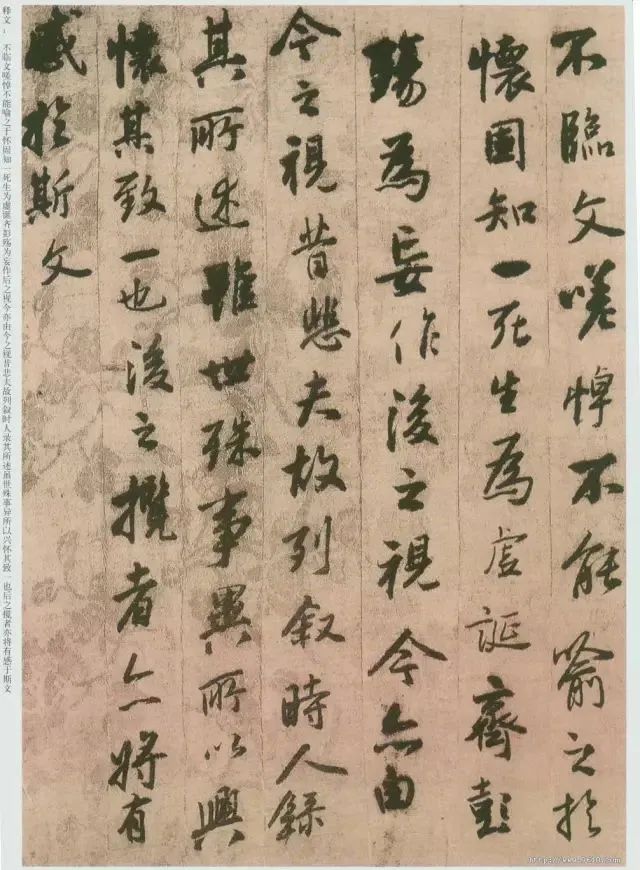 不臨文嗟悼不能喻之於
懷固知一死生為虛誕齊彭
殤為妄作後之視今亦由
今之視昔悲夫故列叙時人錄
其所述雖世殊事異所以興
懷其致一也後之攬者亦將有
感於斯文
释文: 不临文嗟悼不能喻之于怀固知一死生为虚诞齐彭殇为妄作后之视今亦由今之视昔悲夫故列叙时人录其所述虽世殊事异所以兴怀其致一也后之揽者亦将有感于斯文
http://www.9610.com